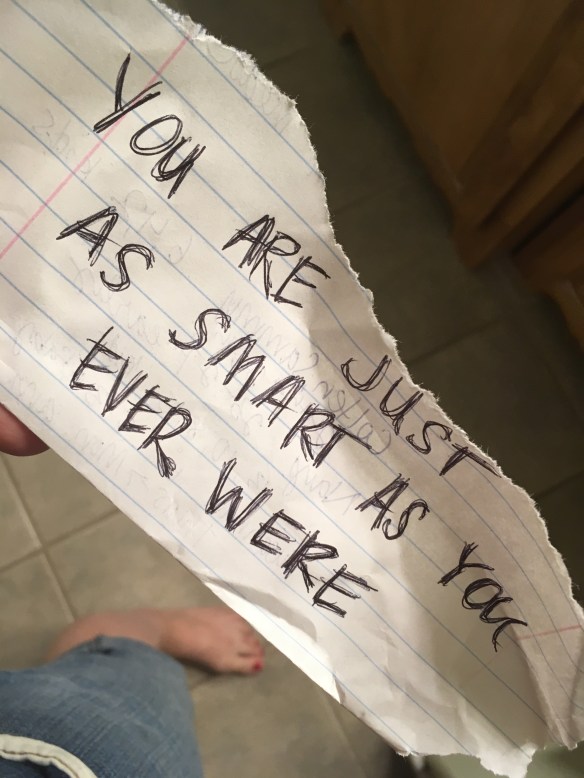 YOU ARE JUST
AS SMART AS YOU
EVER WERE